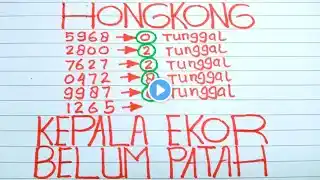 HONGKONG
5968 → 0 Tunggal
2800 → 2 Tunggal
7627 → 2 Tunggal
0472 → Tunggal
9987 → Tunggal
1265 →
KEPALA EKOR
BELUM PATAH